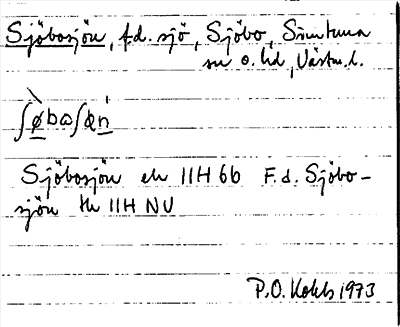 Sjöbosjön, f.d. sjö, Sjöbo, Simtuna
sn o. hd, Västm. l.
ʃøbaʃøn
Sjöbosjön ek 11H 6b F.d. Sjöbo-
sjön tk 11H NV
P.O. 1973